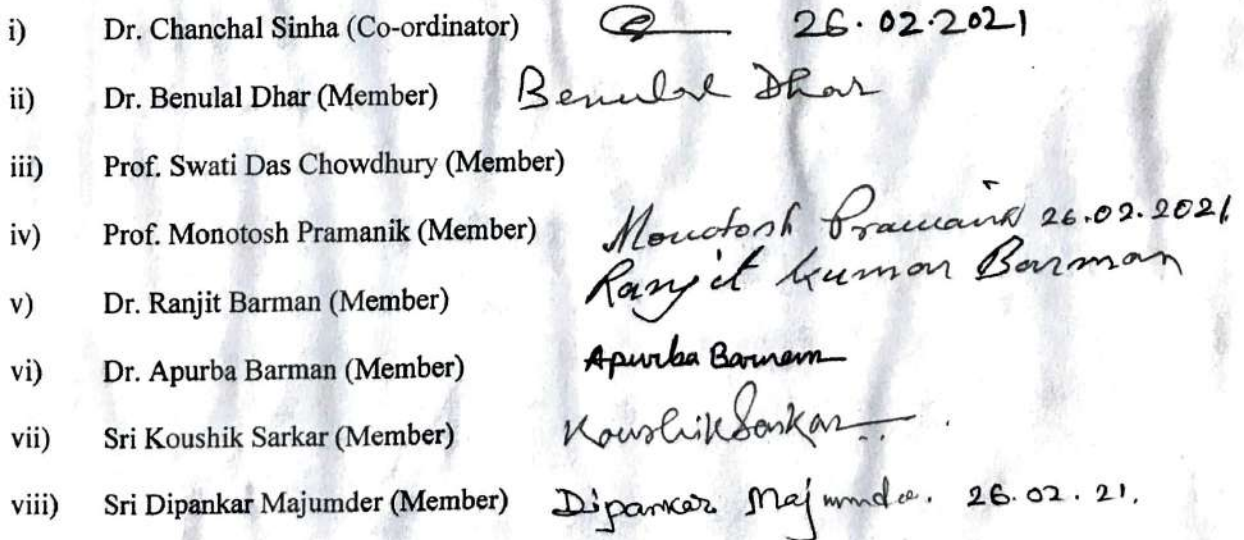 i) Dr. Chanchal Sinha (Co-ordinator) 26.02.2021
ii) Dr. Benulal Dhar (Member) Benulal Dhar
iii) Prof. Swati Das Chowdhury (Member)
iv) Prof. Monotosh Pramanik (Member) Monotosh Pramanik 26.02.2021
v) Dr. Ranjit Barman (Member) Ranjit Kumar Barman
vi) Dr. Apurba Barman (Member) Apurba Barman
vii) Sri Koushik Sarkar (Member) Koushik Sarkar
viii) Sri Dipankar Majumder (Member) Dipankar Majumder. 26.02.21.